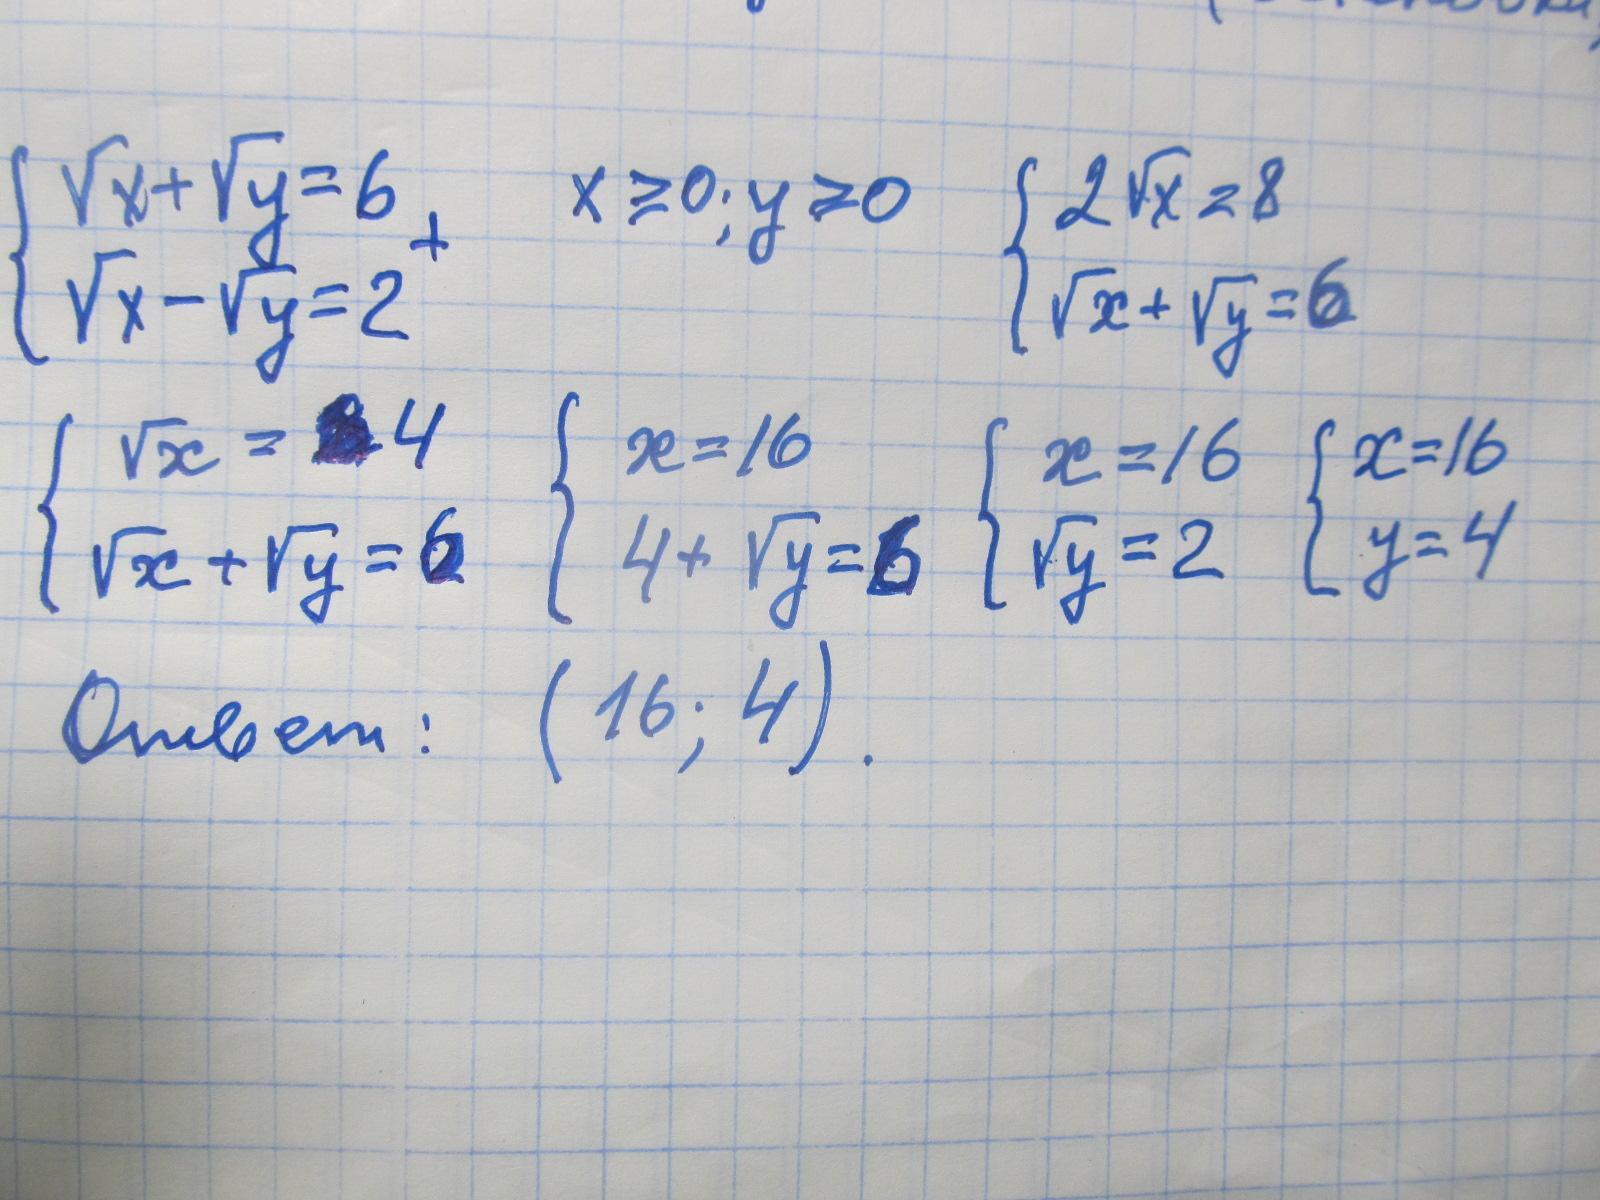 { √x + √y = 6
√x − √y = 2 +
x ≥ 0; y ≥ 0
{ 2√x = 8
√x + √y = 6
{ √x = 4
√x + √y = 6
{ x = 16
4 + √y = 6
{ x = 16
√y = 2
{ x = 16
y = 4
Ответ: (16; 4).